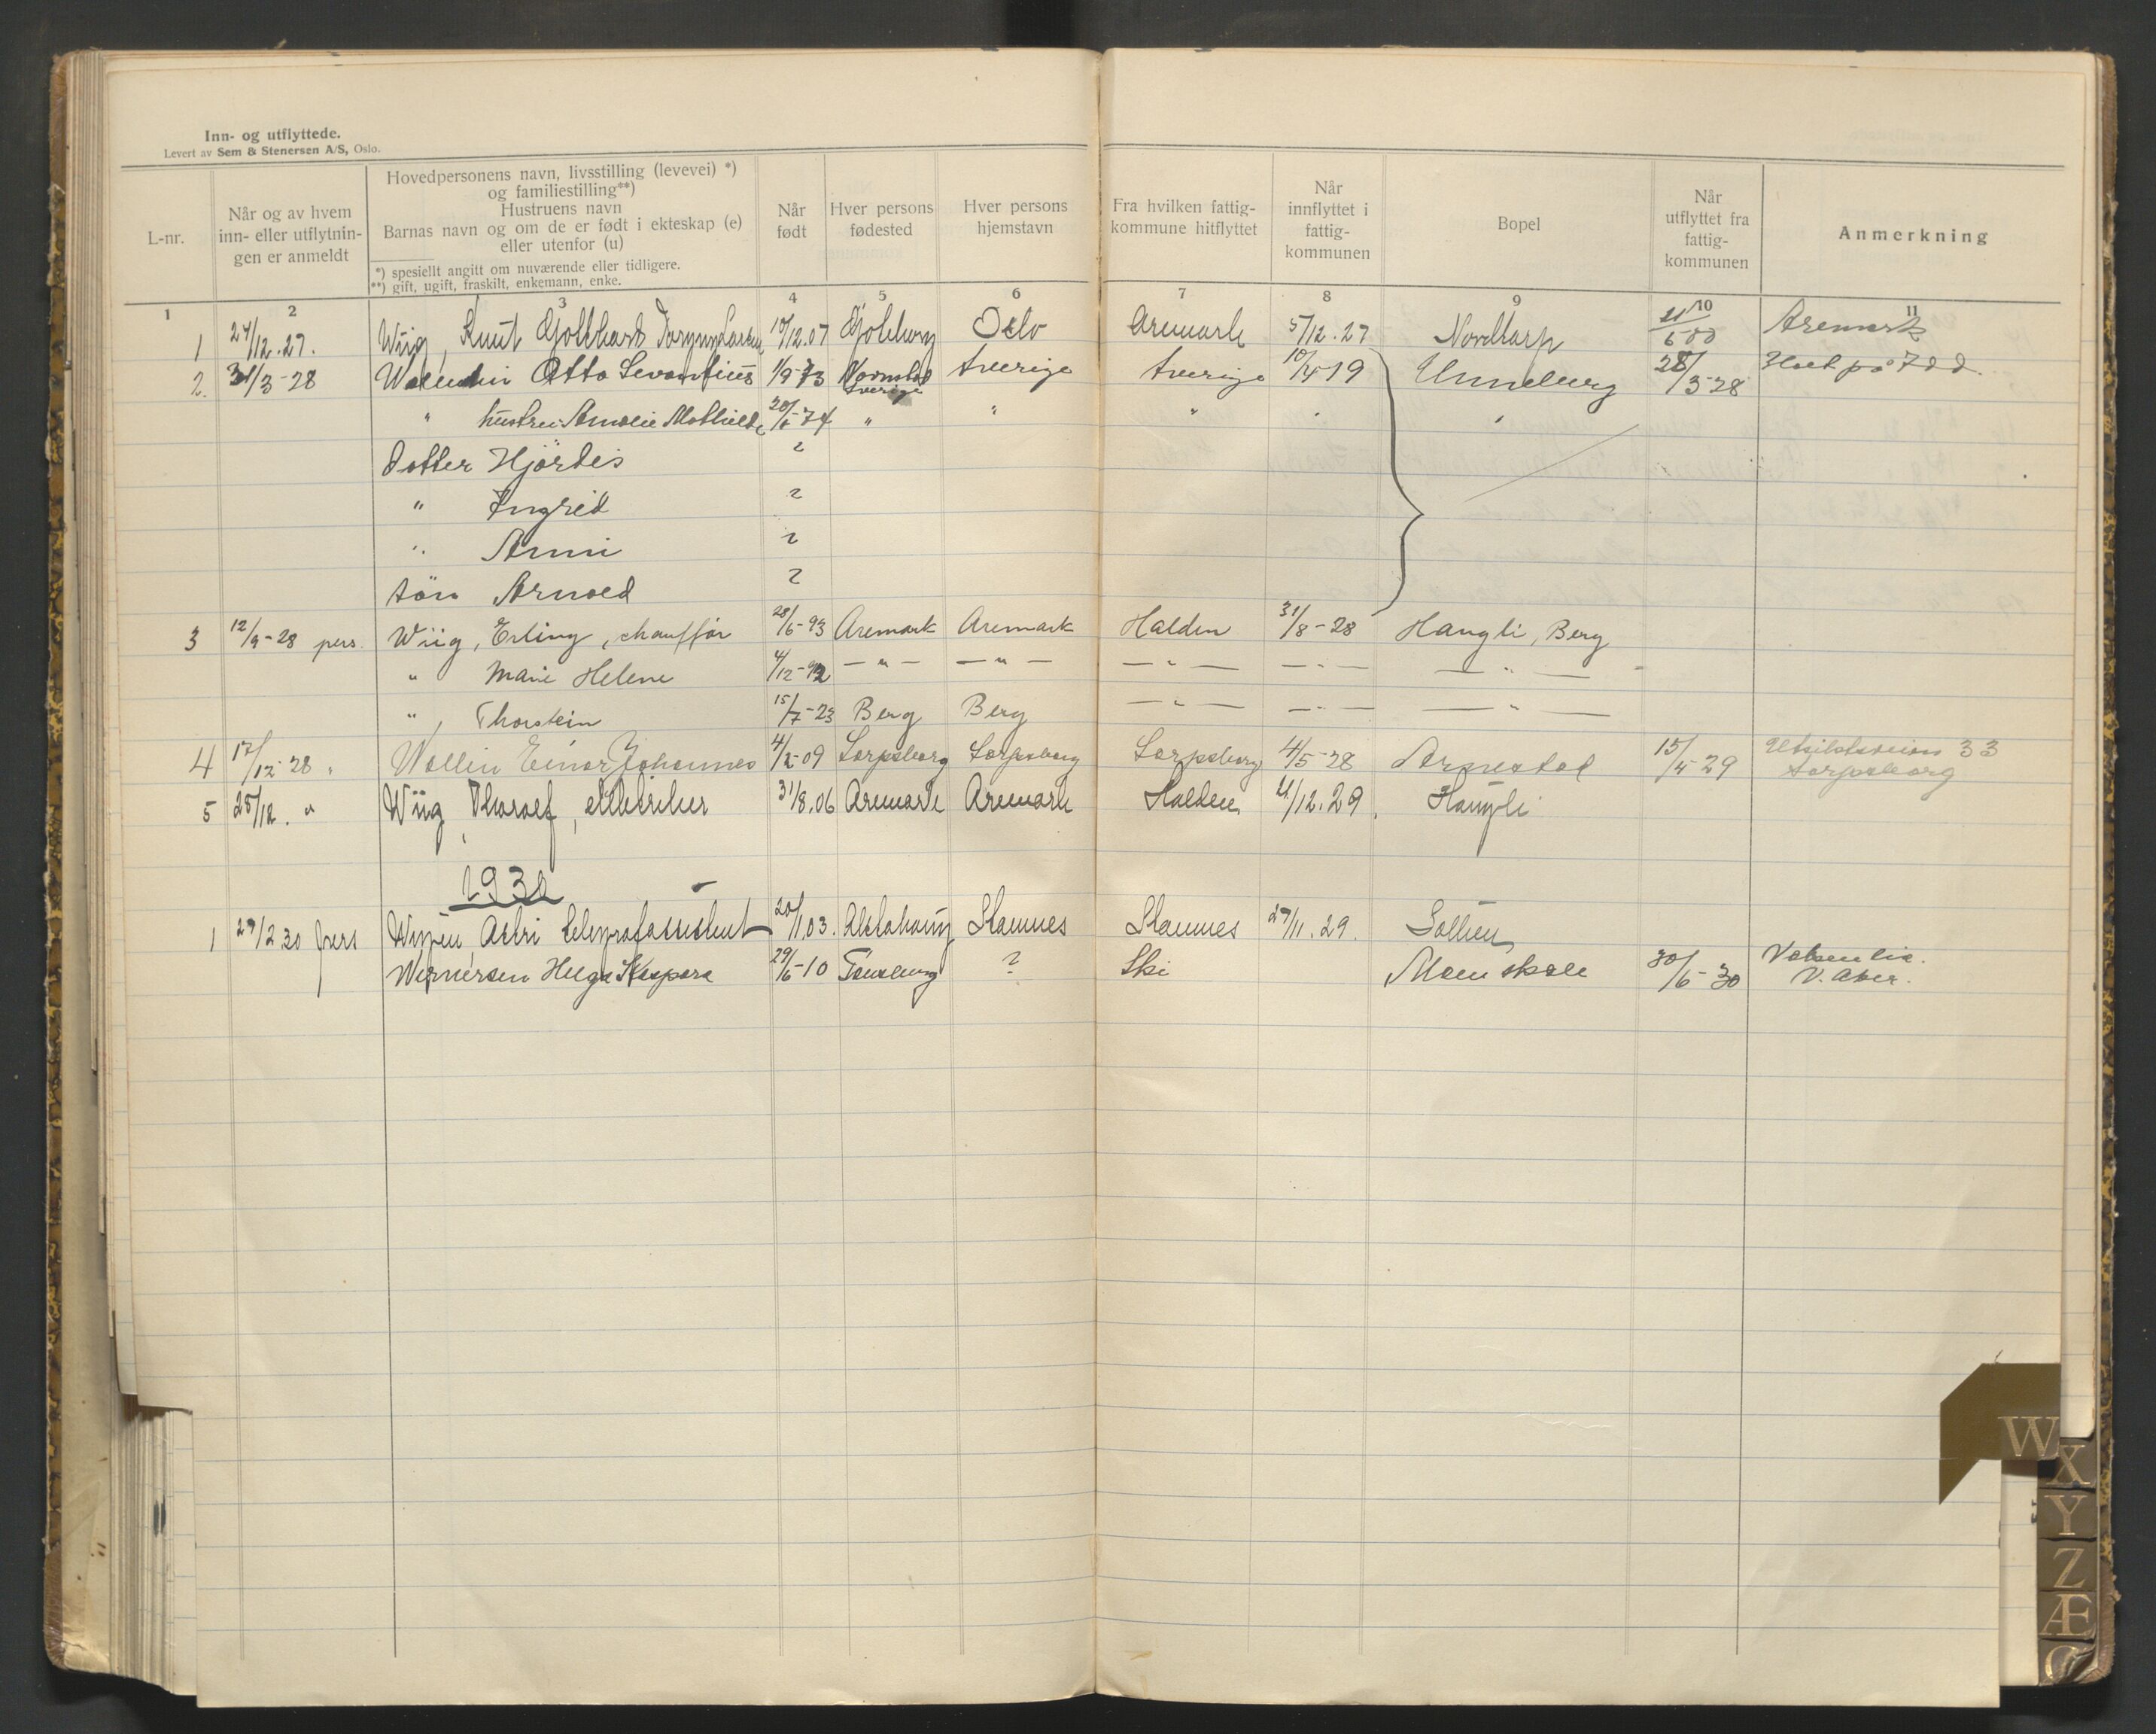 Inn- og utflyttede.
Levert av Sem & Stenersen A/S, Oslo.
L-nr.
Når og av hvem
inn- eller utflytnin-
gen er anmeldt
Hovedpersonens navn, livsstilling (levevei) *)
og familiestilling**)
Hustruens navn
Barnas navn og om de er født i ekteskap (e)
eller utenfor (u)
*) spesiellt angitt om nuværende eller tidligere.
**) gift, ugift, fraskilt, enkemann, enke.
Når
født
Hver persons
fødested
Hver persons
hjemstavn
Fra hvilken fattig-
kommune hitflyttet
Når
innflyttet i
fattig-
kommunen
Bopel
Når
utflyttet fra
fattig-
kommunen
Anmerkning
1 2 3 4 5 6 7 8 9 10 11
1 27/12.27. Wiig, Knut 10/12.07 Oslo Aremark 5/12.27 Nordtorp Aremark
2. 31/3-28 Otto Levantius 1/9-73 Sverige Sverige 10/4-19 Unneberg 28/3-28
Sverige
" hustru Amalie Mathilde " " "
Dotter Hjördis ?
" Ingrid ?
" Anni ?
sön Arnold ?
3 12/9-28 pers. Wiig, Erling, chauffør 28/6-93 Aremark Aremark Halden 31/8-28 Haugli, Berg
" Marie Helene 4/12-92 — " — — " — — " — — " — — " —
" , Thorstein 15/7-23 Berg Berg — " — — " — — " —
4 17/12-28 " Wallin Einar Johannes 4/2-09 Sarpsborg Sarpsborg Sarpsborg 4/5-28 15/4-29 33
Sarpsborg
5 28/12. " Wiig Thoralf, 31/8.06 Aremark Aremark Halden /12.29. Haugli
1930
1 27/2 30 pers Astri telegrafassistent 20/11.03. Stamnes Stamnes 27/11.29. Sollien
Wernersen Helga Kaspara 29/6-10 Tønsberg ? Ski skole 30/6-30
V. Aker.
W
X
Y
Z
Æ